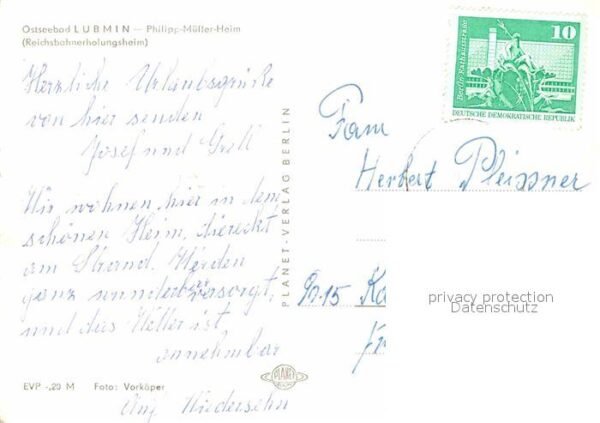 Ostseebad LUBMIN — Philipp-Müller-Heim
(Reichsbahnerholungsheim)
Herzliche Urlaubsgrüße
von hier senden
Josef und
Wir wohnen hier in dem
schönen Heim, direckt
am Strand. Werden
ganz wunderbar versorgt,
und das Wetter ist
annehmbar
Auf Wiedersehn
EVP -,20 M Foto: Vorkäper
PLANET-VERLAG BERLIN
PLANET
Berlin, Rathausstraße
10
DEUTSCHE DEMOKRATISCHE REPUBLIK
Fam
Herbert Pleissner
privacy protection
Datenschutz